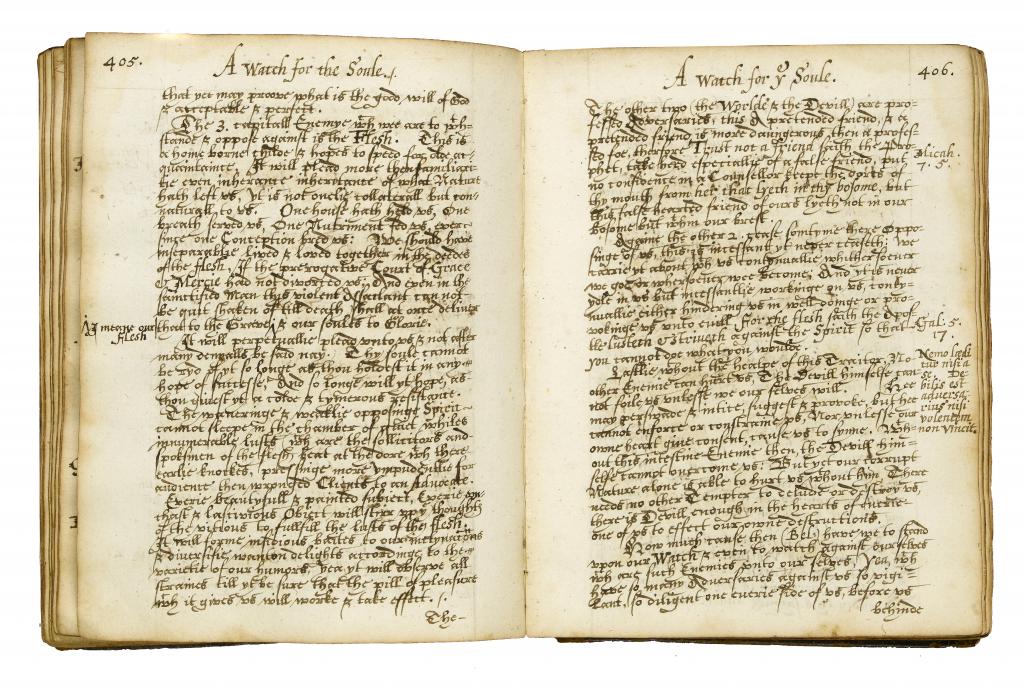 405.
A Watch for the Soule.
that yee may proove what is the good will of God
& acceptable & perfect.
The 3. capitall Enemye wch wee are to wth-
stande & oppose against is the Flesh. This is
a home borne childe & hopes to speed for olde ac-
quaintance. It will plead more then familiari-
the even inherance inheritance of what Nature
hath left vs, yt is not onelie collaterall but con-
naturall to vs. One house hath held vs, One
breath served vs, One Nutriment fed vs, ever
since one Conception bred vs: We should have
inseparablie lived & loved together in the deedes
of the flesh, If the prerogative Court of Grace
& Mercie had not divorced vs; And even in the
sanctified man this violent Assailant can not
be quit shaken of till death shall at once deliver
that to the Grave & our soules to Glorie.
I meane our
flesh
It will perpetuallie plead vnto vs & not after
many denyalls be said nay. Thy soule cannot
be ryd of yt so longe as thou holdest it in any
hope of successe, And so longe will yt hope, as
thou givest yt a colde & tymerous resistance.
The waveringe & weaklie opposinge Spirit
cannot sleepe in the chamber of peace whiles
innumerable lusts wch are the sollicitors and
spokesmen of the flesh beat at the dore wth there
earlie knockes, pressinge more ympudentlie for
audience then wronged Clients to an advocate.
Everie beautyfull & painted subject, Everie vn-
chast & lascivious Obiect will stirr vpp thoughts
of the vitious to fullfill the lusts of the flesh.
It will forme insidious baites to our inclynations
& diversifie wanton delights accordinge to the
varietie of our humors, yea yt will observe all
straines till yt be sure that the pill of pleasure
wch it gives vs will worke & take effect.
The
406.
A Watch for ye Soule.
The other two (the Worlde & the Devill) are pro-
fessed Adversaries, this A pretended friend, & a
pretended friend is more daungerous then a profes-
sed foe, therfore Trust not a friend saith the Pro-
phet, take heed especiallie of a false friend, put
no confidence in a Counsellor keepe the dores of
thy mouth from her that lyeth in thy bosome, but
this false hearted friend of ours lyeth not in our
bosome but wthin our brest.
Micah.
7. 5.
Againe the other 2. cease somtyme there Oppo-
singe of vs, this is incessant yt never ceaseth: We
carrie yt about wth vs contynuallie whithersoever
we goe or wheresoever wee become, And yt is never
ydle in vs but incessantlie workinge on vs, conty-
nuallie either hindering vs in well doinge or pro-
vokinge vs unto evill For the flesh saith the Apos-
tle lusteth & striveth against the Spirit so that
you cannot doe what you woulde.
Gal. 5.
17.
Lastlie wthout the healpe of this Traitor, No
other Enemie can hurt vs, The Devill himselfe can
not foile vs unlesse we our selves will. Hee
may perswade & intice, suggest & provoke, but hee
cannot enforce or constraine vs, Nor unlesse our
owne heart give consent, cause vs to synne. Wth-
out this intestine Enemie then, the Devill him-
selfe cannot overcome vs: But yet our corrupt
Nature alone is able to hurt vs wthout him, There
needs no other Tempter to delude or destroy vs,
there is Devill enough in the hearts of everie
one of vs to effect our owne destructions.
Nemo laedi
tur nisi a
se. De
bilis est
adversa
rius nisi
volentem
non vincit.
How much cause then (Bel:) have we to stand
vpon our Watch & even to watch against ourselves
wch are such Enemies vnto our selves, You wch
have so many Adversaries against vs so vigi-
lant, so diligent one everie side of vs, before vs
behinde